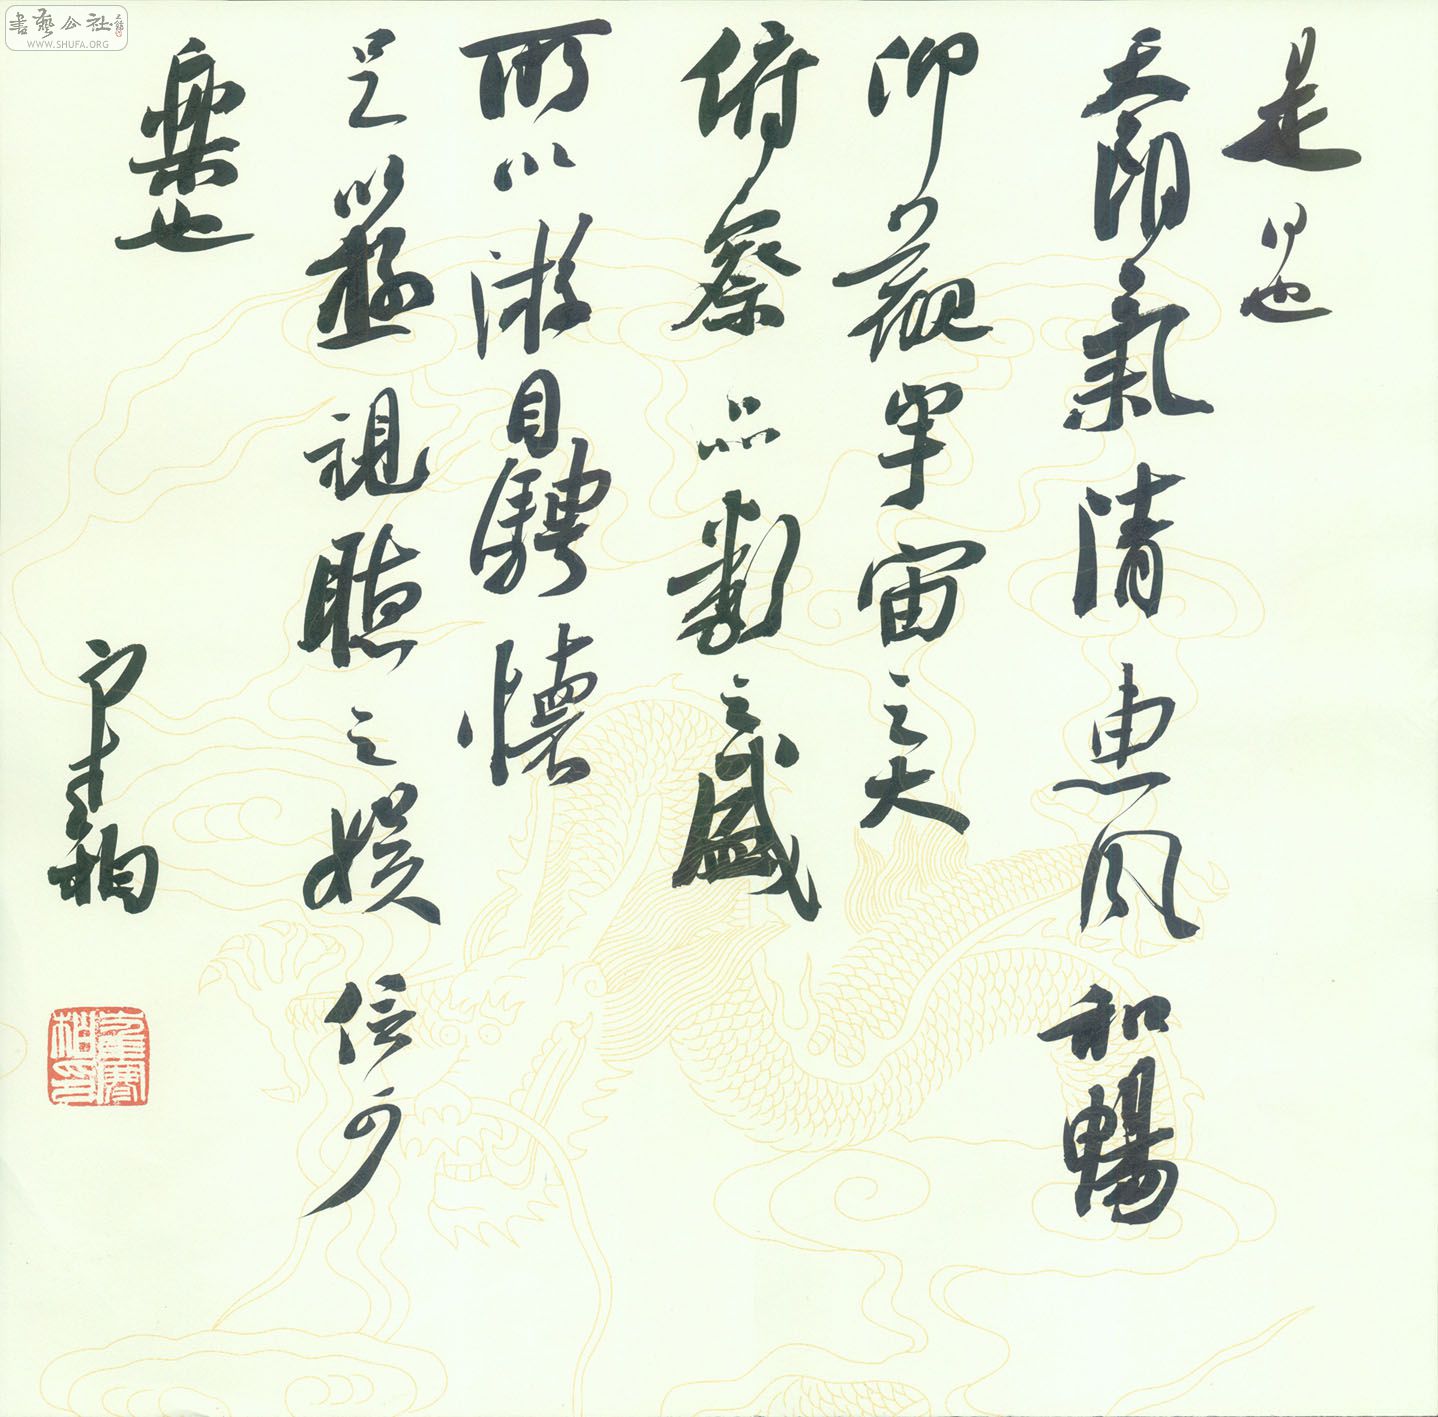 書藝公社
WWW.SHUFA.ORG
是日也
天朗氣清惠風和暢
仰觀宇宙之大
俯察品類之盛
所以游目騁懷
足以極視聽之娛信可
樂也